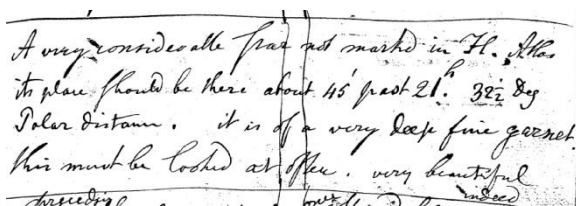 A very considerable star not marked in Fl. Atlas
its place should be there about 45' past 21h. 32½ deg
Polar distance. it is of a very deep fine garnet.
this must be looked at often. very beautiful
indeed
preceding